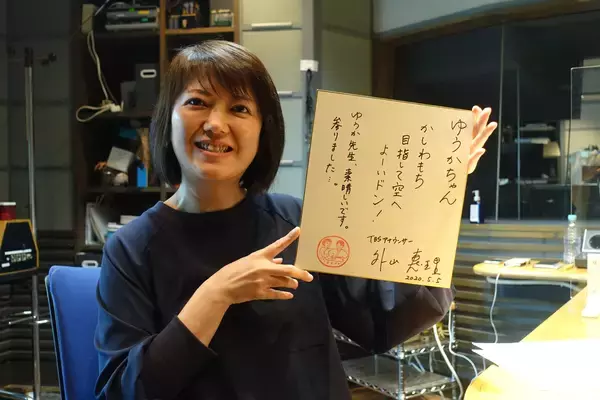 ゆうかちゃん
かしわもち
目指して空へ
よーいドン!
ゆうか先生、素晴しいです。
参りました…。
TBSアナウンサー
外山 惠理
2020.5.5